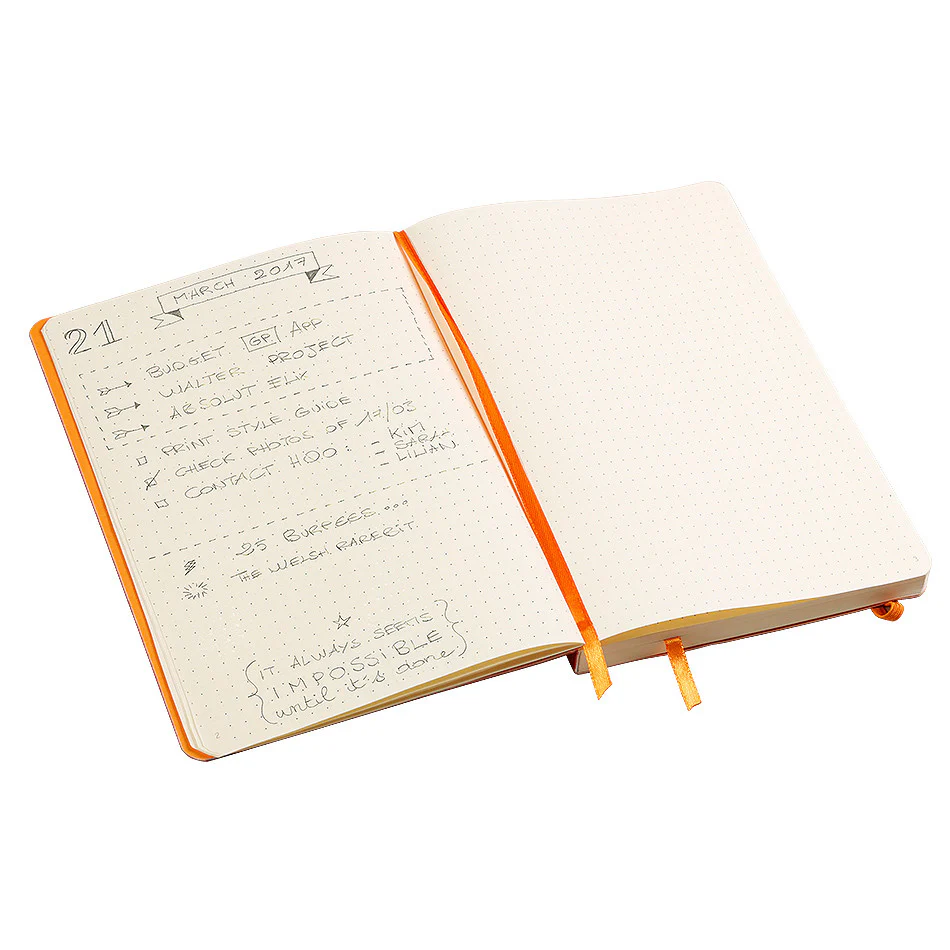 MARCH 2017
21
BUDGET GP. APP
WALTER PROJECT
ABSOLUT ELIX
PRINT STYLE GUIDE
CHECK PHOTOS OF 17/03
CONTACT HOO: - KIM
- SARAH
- LILIAN
25 BURPEES...
THE WELSH RAREBIT
{IT ALWAYS SEEMS
IMPOSSIBLE
until it's done}
2